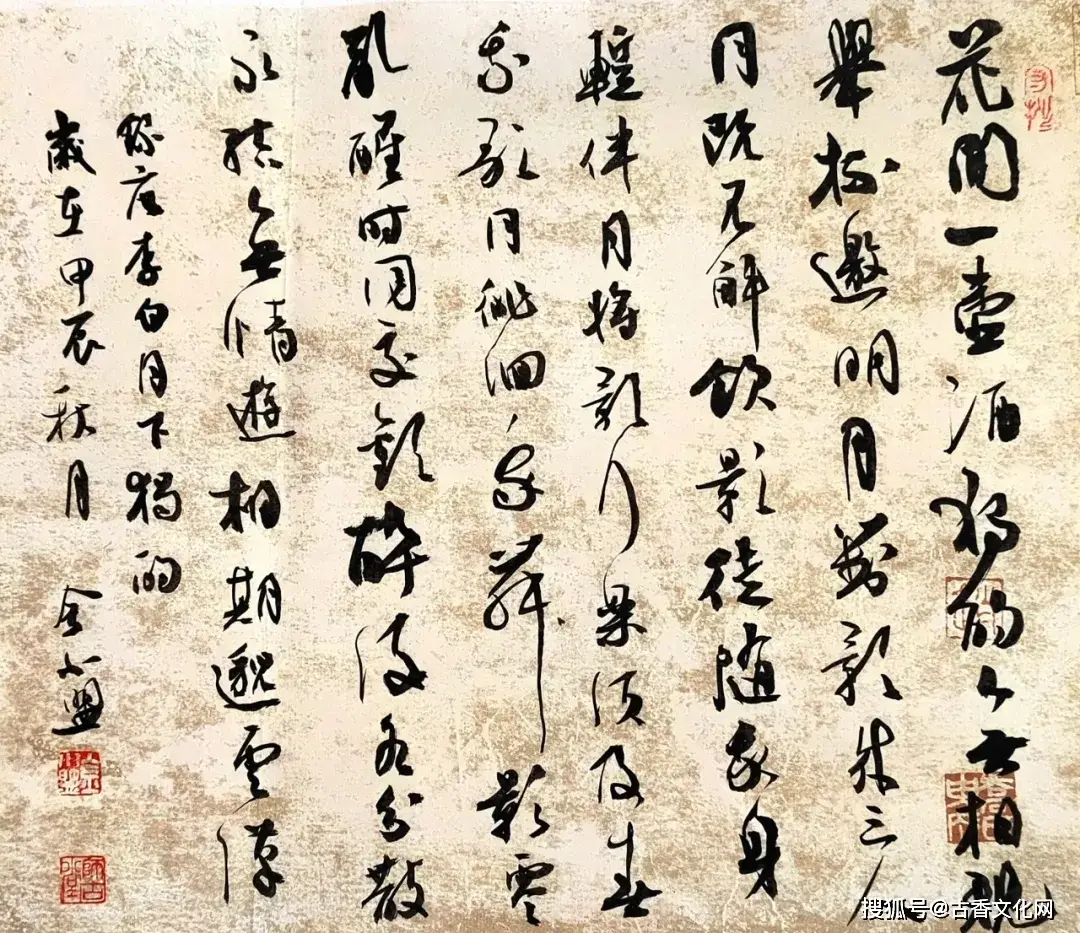 花間一壺酒獨酌無相親
舉杯邀明月對影成三人
月既不解飲影徒隨我身
暫伴月將影行樂須及春
我歌月徘徊我舞影零
亂醒時同交歡醉後各分散
永結無情遊相期邈雲漢
錄唐李白月下獨酌
歲在甲辰秋月 金小盟
搜狐号@古香文化网